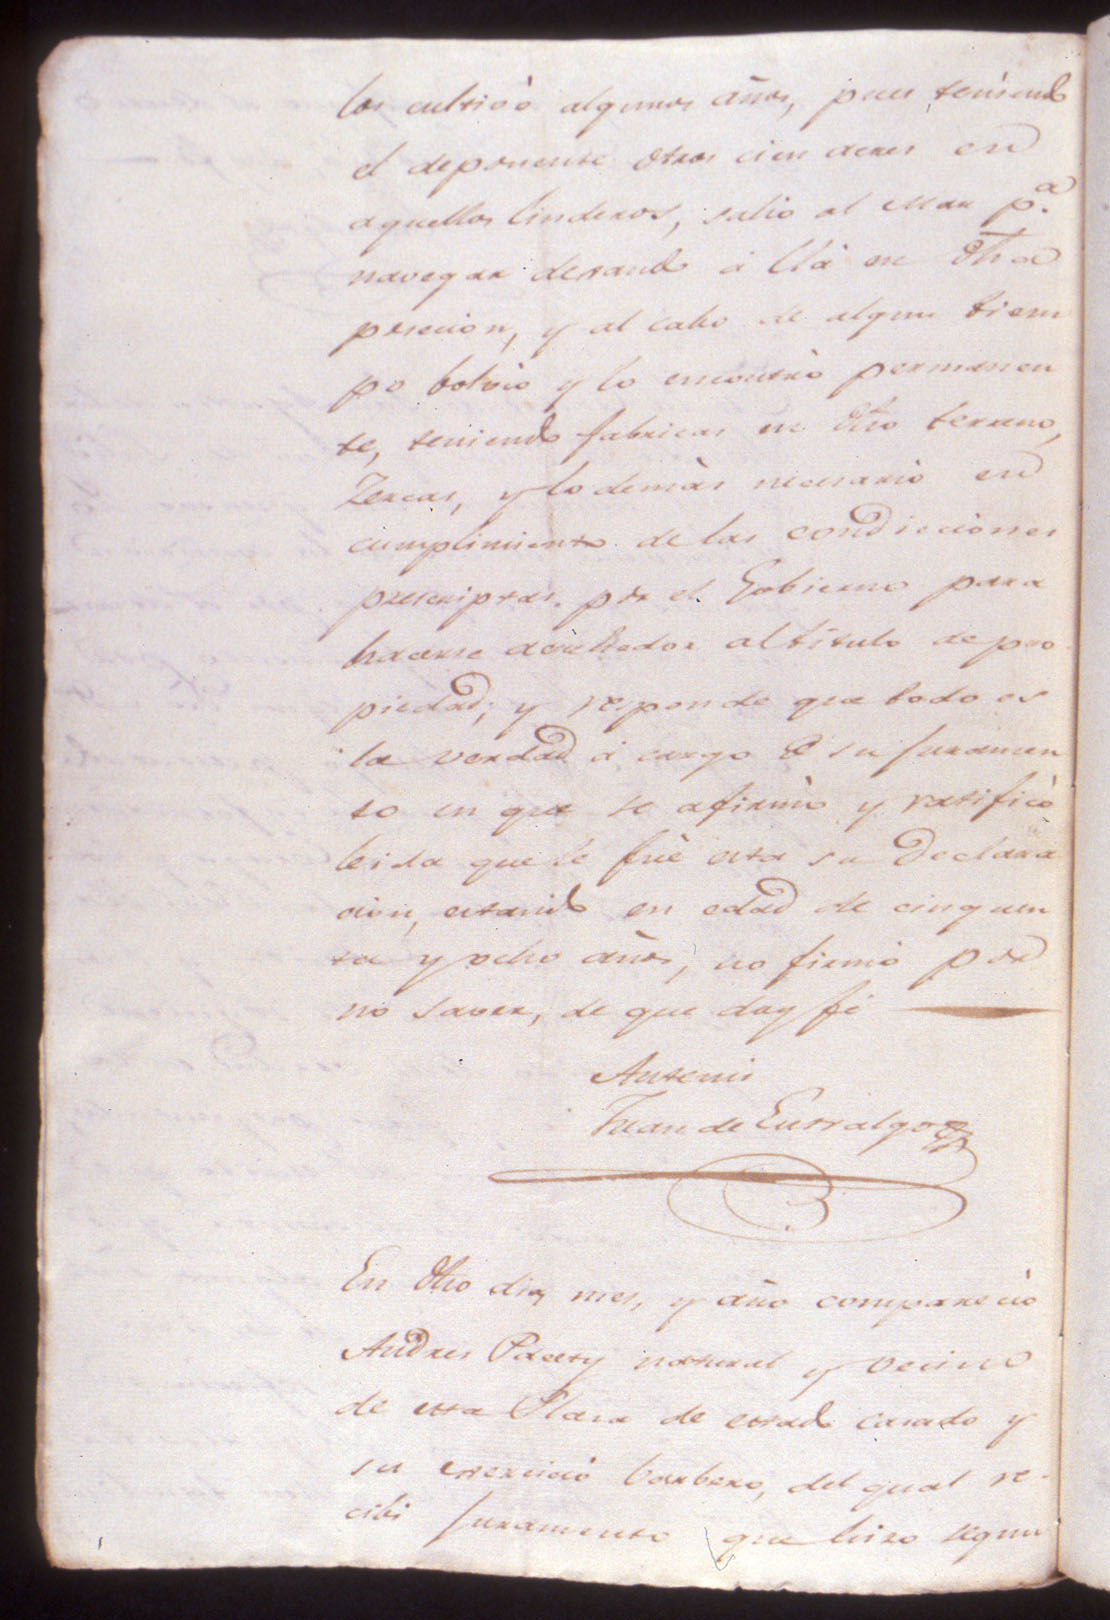 los cultivò algunos años, pues teniendo
el deponente otros cien acres en
aquellos linderos, salio al Mar pª
navegar desando á llà en dha
posecion, y al cabo de algun tiem
po bolvio y lo encontrò permanen
te, teniendo fabricas en dho terreno,
Zercas, y lo demàs necesario en
cumplimiento de las condiciones
prescriptas por el Gobierno para
hacerse acrehedor al titulo de pro
piedad; y responde que todo es
la verdad á cargo de su juramen
to en que se afirmò y ratificò
leida que le fuè esta su Declara
cion, estando en edad de cinquen
ta y ocho años, no firmò por
no saver, de que doy fé
Antemi
Juan de Entralgo
En dho dia, mes, y año comparecio
Andres Pacety natural y vecino
de esta Plaza de estado casado y
su exercicio barbero, del qual re-
cibi juramento que hizo segun